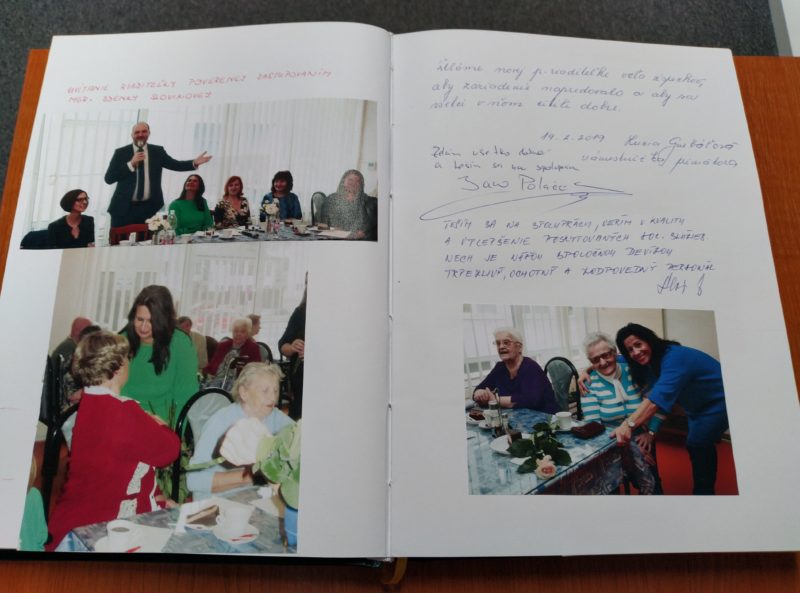 UVÍTANIE RIADITEĽKY POVERENEJ ZASTUPOVANÍM
MGR. ZDENKY SLOVINOVEJ
Želáme novej p. riaditeľke veľa úspechov,
aby zariadenie napredovalo a aby sa
všetci v ňom cítili dobre.
19. 2. 2019
námestníčka primátora
Želám všetko dobré
a teším sa na spoluprácu
TEŠÍM SA NA SPOLUPRÁCU, VERÍM V KVALITU
A VYLEPŠENIE POSKYTOVANÝCH SOC. SLUŽIEB.
NECH JE NAŠOU SPOLOČNOU DEVÍZOU
TRPEZLIVÝ, OCHOTNÝ A ZODPOVEDNÝ PERSONÁL